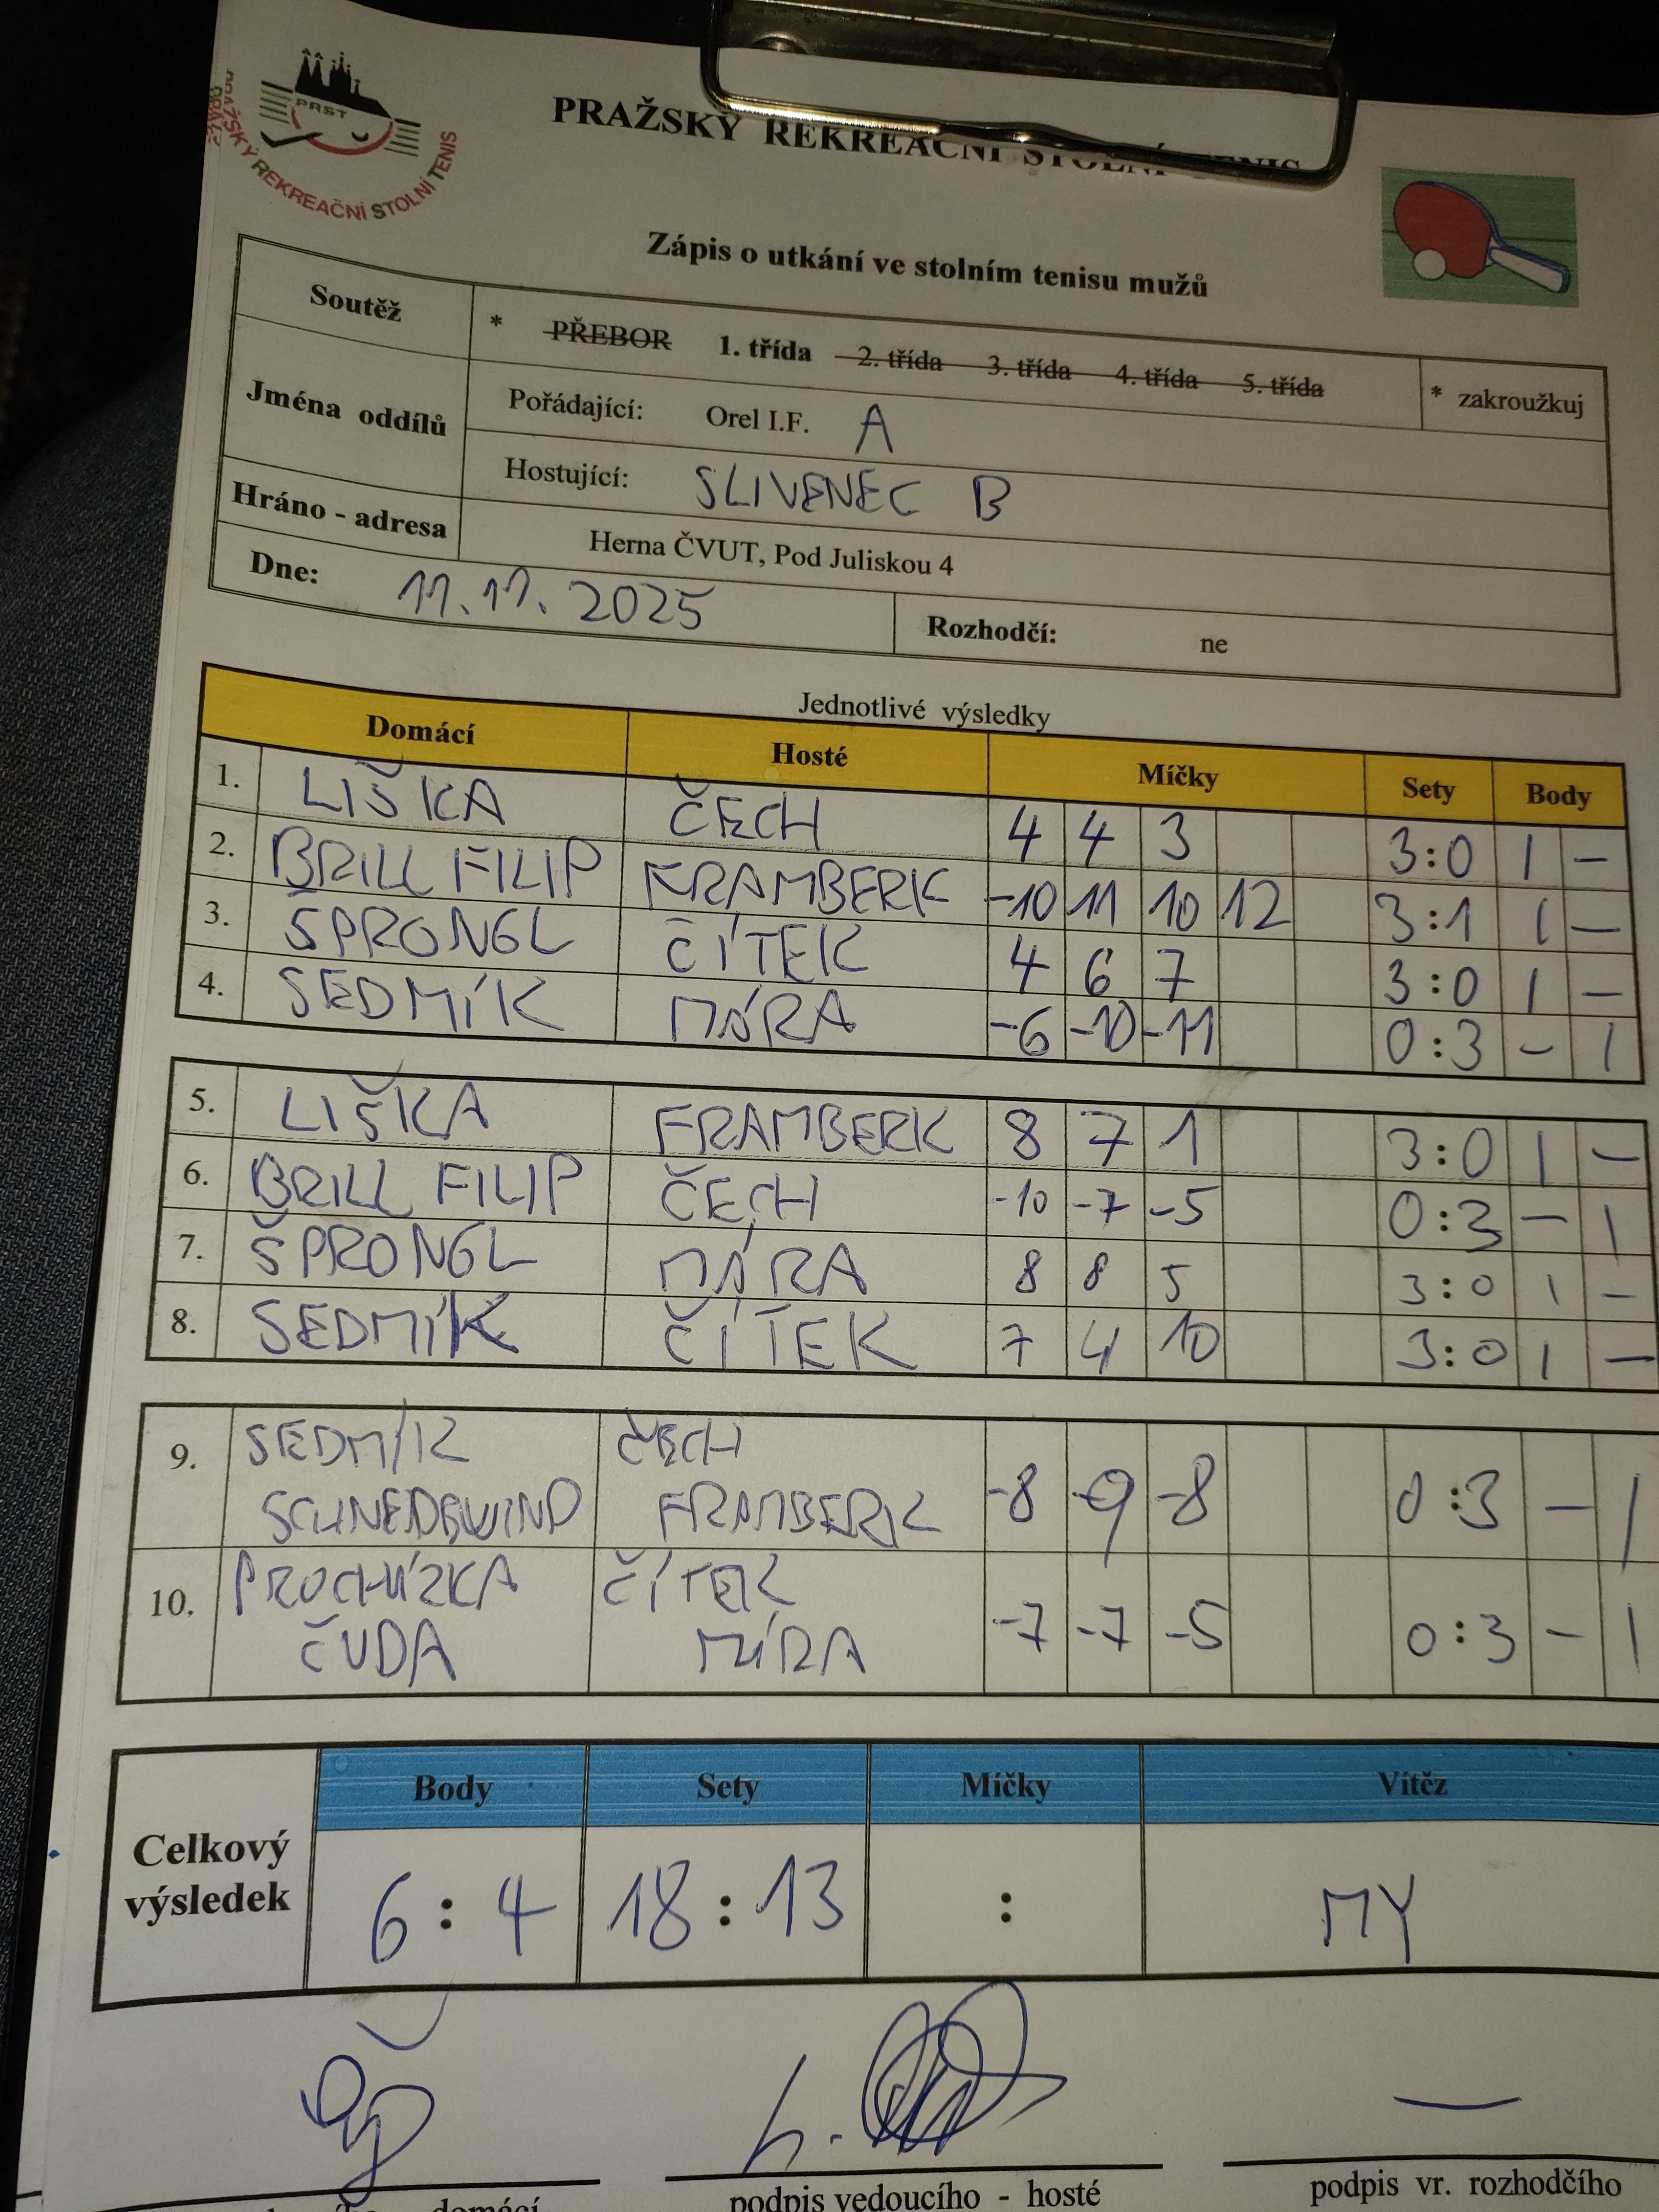 PRST
PRAŽSKÝ REKREAČNÍ STOLNÍ TENIS
PRAŽSKÝ REKREAČNÍ STOLNÍ TENIS
Zápis o utkání ve stolním tenisu mužů
Soutěž * PŘEBOR 1. třída 2. třída 3. třída 4. třída 5. třída * zakroužkuj
Jména oddílů Pořádající: Orel I.F. A
Hostující: SLIVENEC B
Hráno - adresa Herna ČVUT, Pod Juliskou 4
Dne: 11.11.2025 Rozhodčí: ne
Jednotlivé výsledky
Domácí Hosté Míčky Sety Body
1. LIŠKA ČECH 4 4 3 3:0 1 –
2. BRILL FILIP FRAMBERK -10 11 10 12 3:1 1 –
3. ŠPRONGL ČÍTEK 4 6 7 3:0 1 –
4. SEDMÍK MÁRA -6 -10 -11 0:3 – 1
5. LIŠKA FRAMBERK 8 7 1 3:0 1 –
6. BRILL FILIP ČECH -10 -7 -5 0:3 – 1
7. ŠPRONGL MÁRA 8 8 5 3:0 1 –
8. SEDMÍK ČÍTEK 7 4 10 3:0 1 –
9. SEDMÍK ČECH -8 -9 -8 0:3 – 1
SCHNEDEWIND FRAMBERK
10. PROCHÁZKA ČÍTEK -7 -7 -5 0:3 – 1
ČUDA MÁRA
Body Sety Míčky Vítěz
Celkový výsledek 6:4 18:13 : MY
domácí podpis vedoucího - hosté podpis vr. rozhodčího